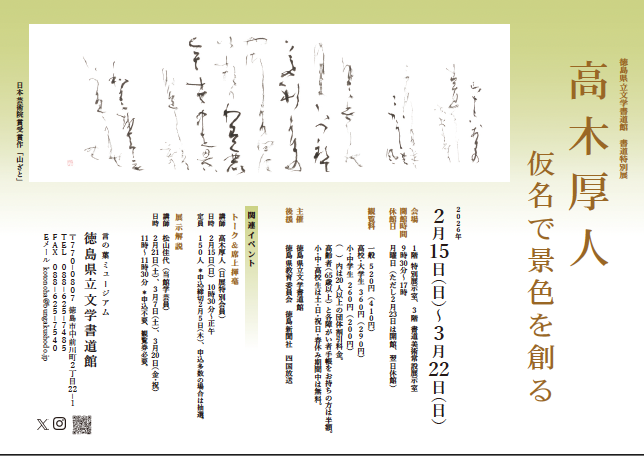 徳島県立文学書道館 書道特別展
高木厚人
仮名で景色を創る
日本芸術院賞受賞作「山ざと」
2026年
2月15日(日)~3月22日(日)
会場 1階 特別展示室、3階 書道美術常設展示室
開館時間 9時30分~17時
休館日 月曜日(ただし2月23日は開館、翌日休館)
観覧料 一般 520円(410円)
高校・大学生 360円(290円)
小・中学生 260円(200円)
( )内は20人以上の団体割引料金。
高齢者(65歳以上)と各障がい者手帳をお持ちの方は半額。
小・中・高校生は土・日・祝日・春休み期間中は無料。
主催 徳島県立文学書道館
後援 徳島県教育委員会 徳島新聞社 四国放送
関連イベント
トーク&席上揮毫
講師 高木厚人(日展特別会員)
日時 2月15日(日) 10時30分~正午
定員 150人 *申込締切2月5日(木)、申込多数の場合は抽選。
展示解説
講師 松山佳代(当館学芸員)
日時 2月21日(土)、3月7日(土)、3月20日(金・祝)
11時~11時30分 *申込不要、観覧券必要。
言の葉ミュージアム
徳島県立文学書道館
〒770-0807 徳島市中前川町2丁目22-1
TEL 088-625-7485
FAX 088-625-7540